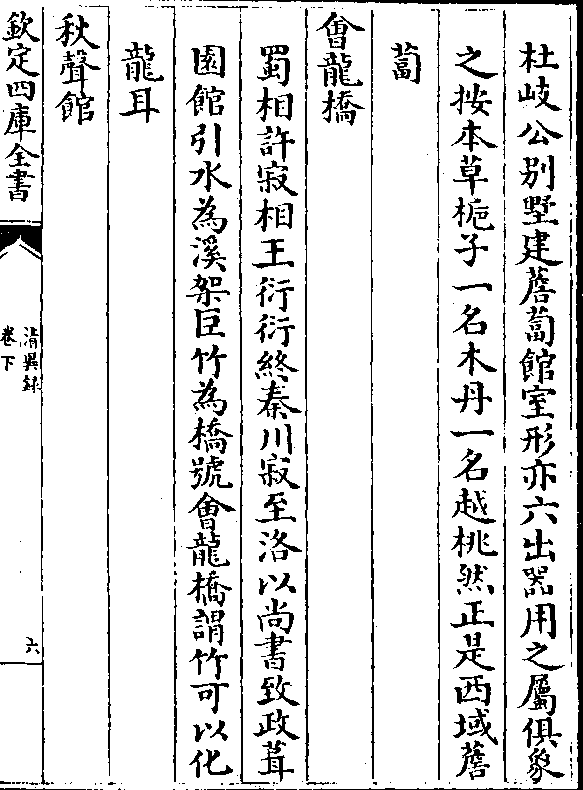 杜岐公别墅建薝蔔館室形亦六出器用之屬俱象
之按本草梔子一名木丹一名越桃然正是西域薝
蔔
會龍橋
蜀相許寂相王衍衍終秦川寂至洛以尚書致政葺
園館引水為溪架巨竹為橋號會龍橋謂竹可以化
龍耳
秋聲館
欽定四庫全書
清異録
卷下
六